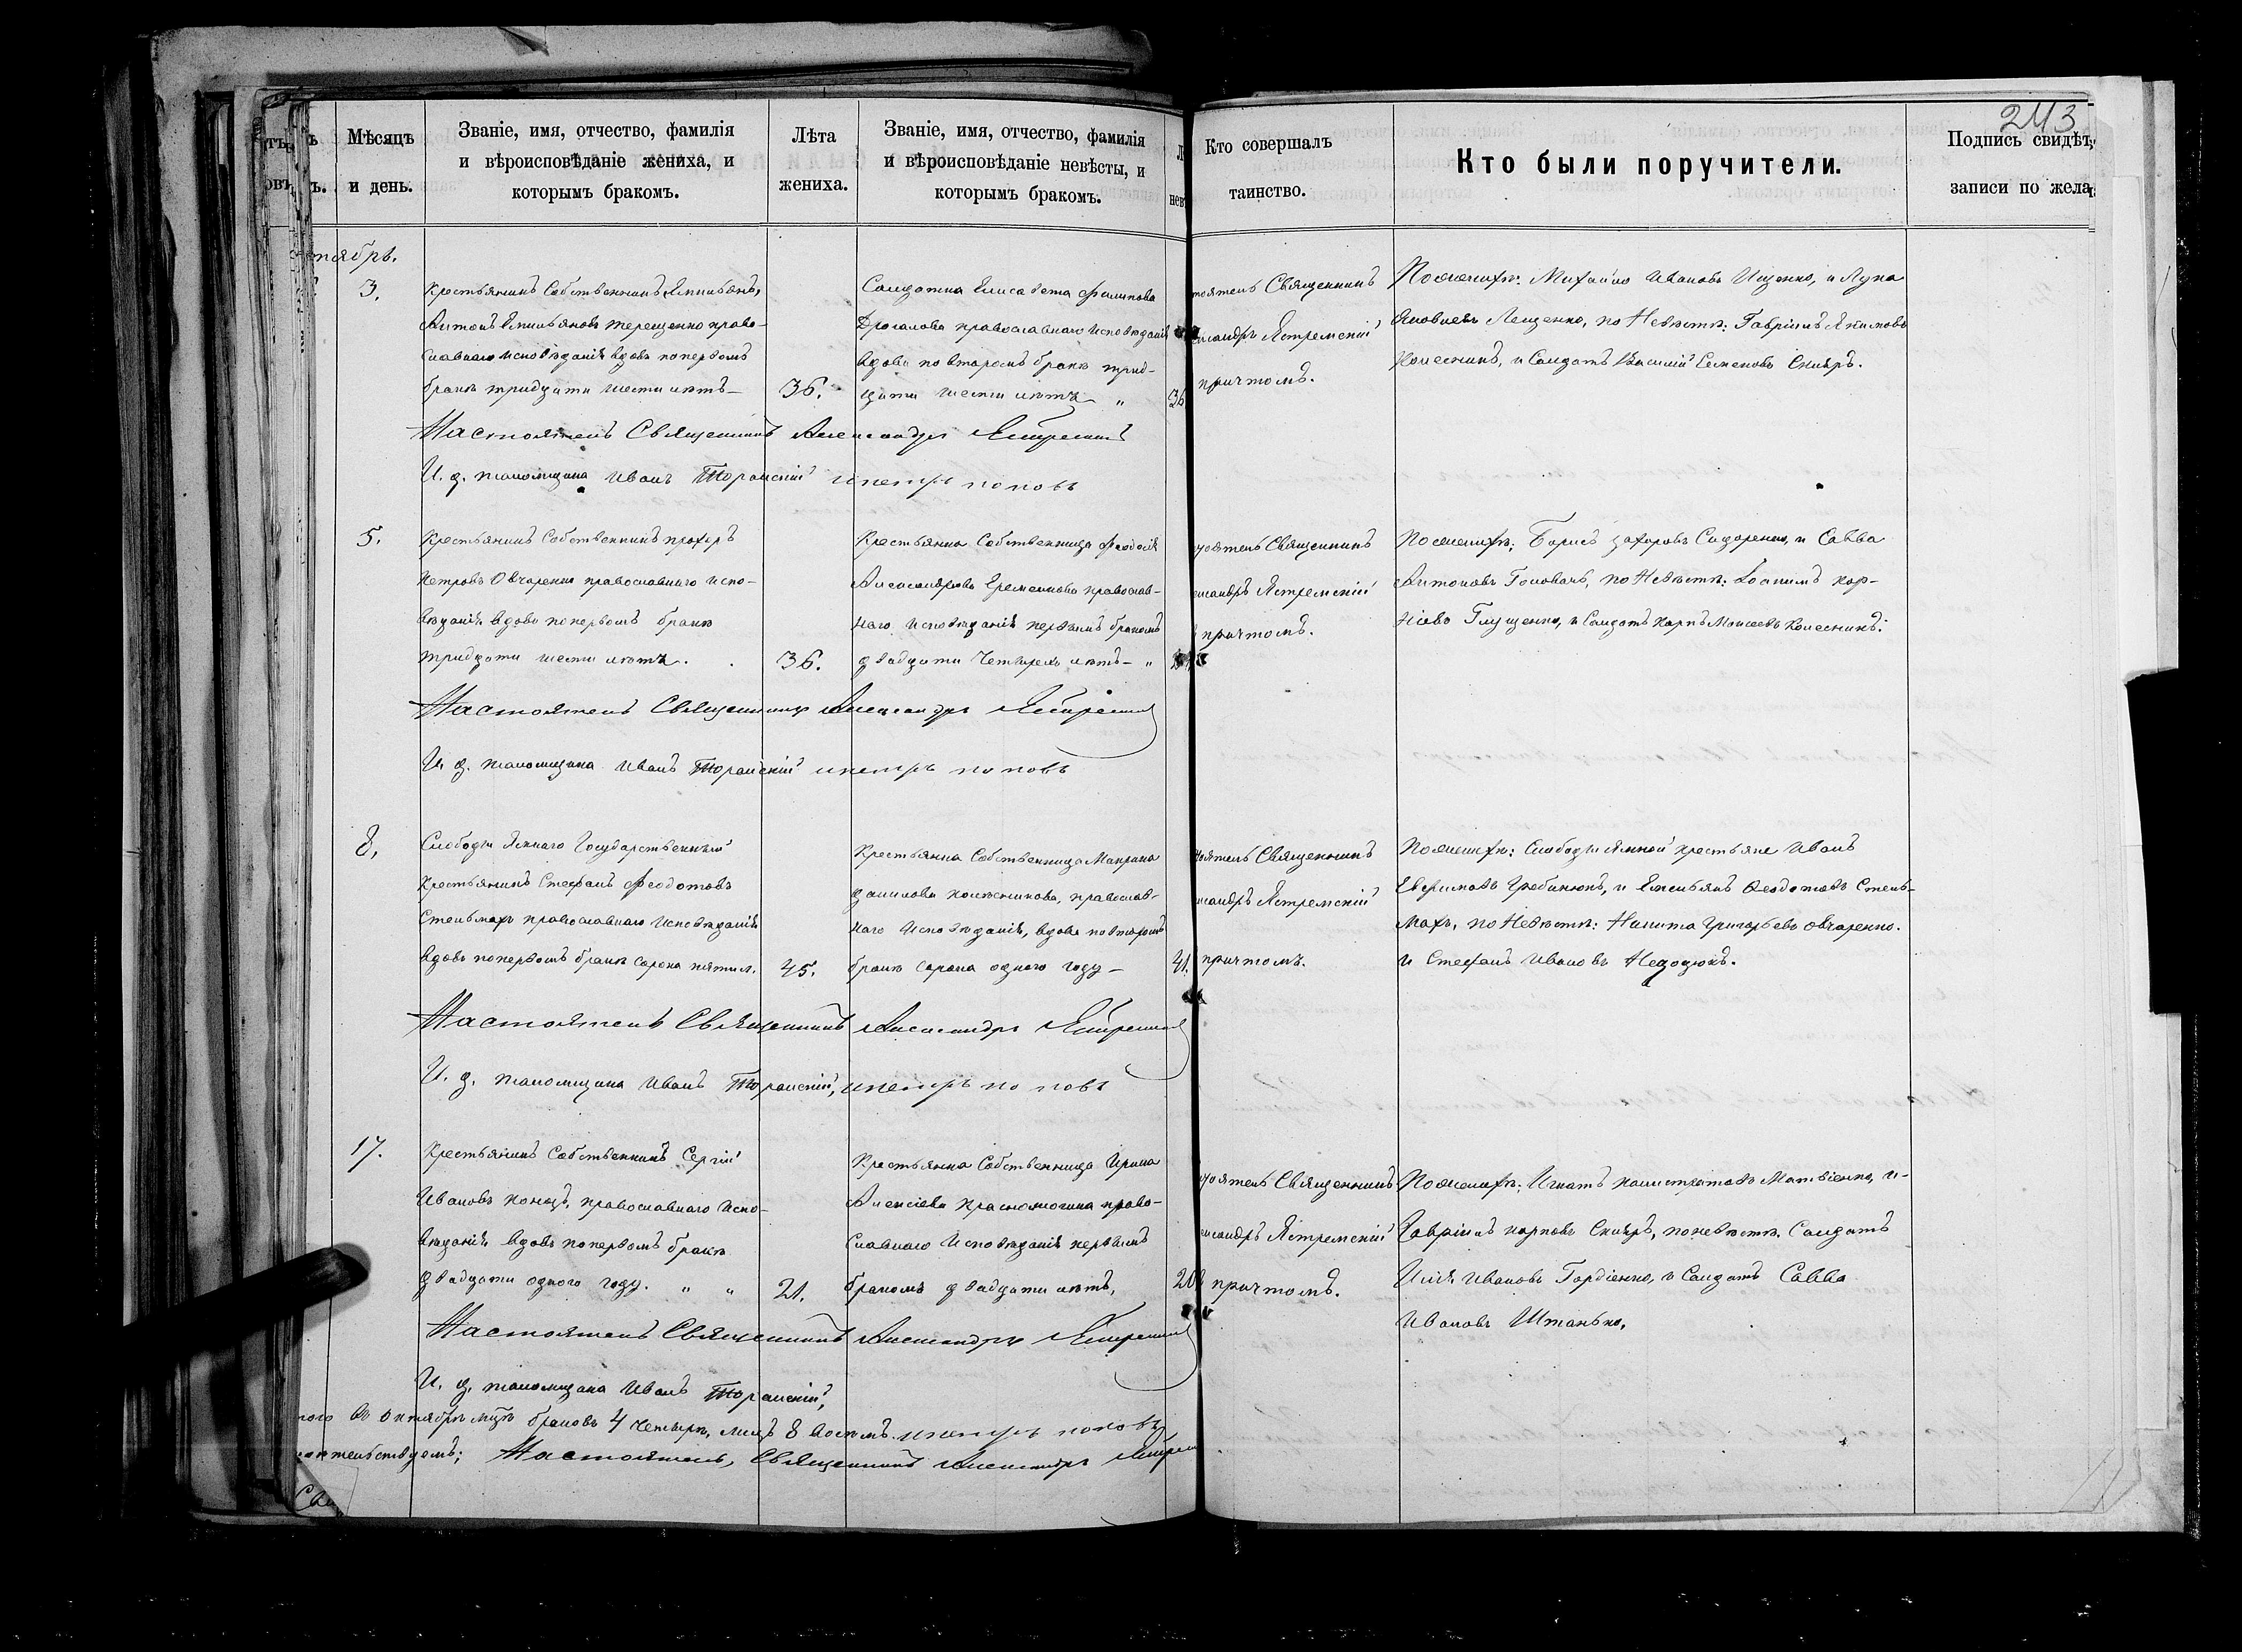 243
Мѣсяцъ
и день.
Званіе, имя, отчество, фамилія
и вѣроисповѣданіе жениха, и
которымъ бракомъ.
Лѣта
жениха.
Званіе, имя, отчество, фамилія
и вѣроисповѣданіе невѣсты, и
которымъ бракомъ.
Кто совершалъ
таинство.
Кто были поручители.
Подпись свидѣт
записи по жела
тябрь.
3.
Крестьянинъ Собственникъ
Антонъ Емильяновъ Терещенко право-
славнаго исповѣданія вдовъ попервомъ
бракѣ тридцати шести лѣтъ—
36.
Солдатка Елисавета Филипова
православнаго исповѣданія
вдова по второмъ бракѣ трид-
цати шести лѣтъ „
36
тоятель Священникъ
ександръ Ястремскій
причтомъ.
По женихѣ: Михайло Ивановъ Ищенко, и Лука
Яковлевъ Лещенко, по Невѣстѣ: Гавріилъ Якимовъ
Колесникъ, и Солдатъ Василій Семеновъ Скляръ.
Настоятель Священникъ Александръ Ястремскій
И. д. псаломщика Иванъ и петръ поповъ
5.
Крестьянинъ Собственникъ прохоръ
Петровъ Овчаренко православнаго испо-
вѣданія вдовъ попервомъ бракѣ
тридцати шести лѣтъ.
36.
Крестьянка Собственница Феодосія
Александрова Еременкова православ-
наго исповѣданія первымъ бракомъ
двадцати четырехъ лѣтъ— „
тоятель Священникъ
ександръ Ястремскій
причтомъ.
По женихѣ: Борисъ Захаровъ Сидоренко, и Савва
Антоновъ Головачъ, по Невѣстѣ: Іоакимъ Кор-
ніевъ Глущенко, и Солдатъ Карпъ Моисеевъ Колесникъ.
Настоятель Священникъ Александръ Ястремскій
И. д. псаломщика Иванъ и петръ поповъ
8.
Слободы Ямнаго Государственный
Крестьянинъ Стефанъ Феодотовъ
Стельмахъ православнаго исповѣданія
вдовъ попервомъ бракѣ сорока пяти л.
45.
Крестьянка Собственница Макрина
Данилова православ-
наго исповѣданія, вдова повторомъ
бракѣ сорока одного году—
41.
тоятель Священникъ
ександръ Ястремскій
причтомъ.
По женихѣ: Слободы Ямной крестьяне Иванъ
Евфимовъ Гребинюкъ, и Емельянъ Феодотовъ Стель-
махъ, по Невѣстѣ: Никита Григорьевъ Овчаренко.
и Стефанъ Ивановъ
Настоятель Священникъ Александръ Ястремскій
И. д. псаломщика Иванъ и петръ поповъ
17.
Крестьянинъ Собственникъ Сергій
Ивановъ православнаго испо-
вѣданія вдовъ попервомъ бракѣ
двадцати одного году. „ „
21.
Крестьянка Собственница Ирина
Алексіева право-
славнаго исповѣданія первымъ
бракомъ двадцати лѣтъ,
20
тоятель Священникъ
ександръ Ястремскій
причтомъ.
По женихѣ: Игнатъ Калистратовъ Матвіенко, и-
Гавріилъ Карповъ Скляръ, по невѣстѣ: Солдатъ
Илія Ивановъ Гордіенко, и Солдатъ Савва
Ивановъ Штанько,
Настоятель Священникъ Александръ Ястремскій
И. д. псаломщика Иванъ
въ октябрѣ мцѣ браковъ 4 четыре, лицъ 8 восемь. и петръ поповъ
Настоятель, Священникъ Александръ